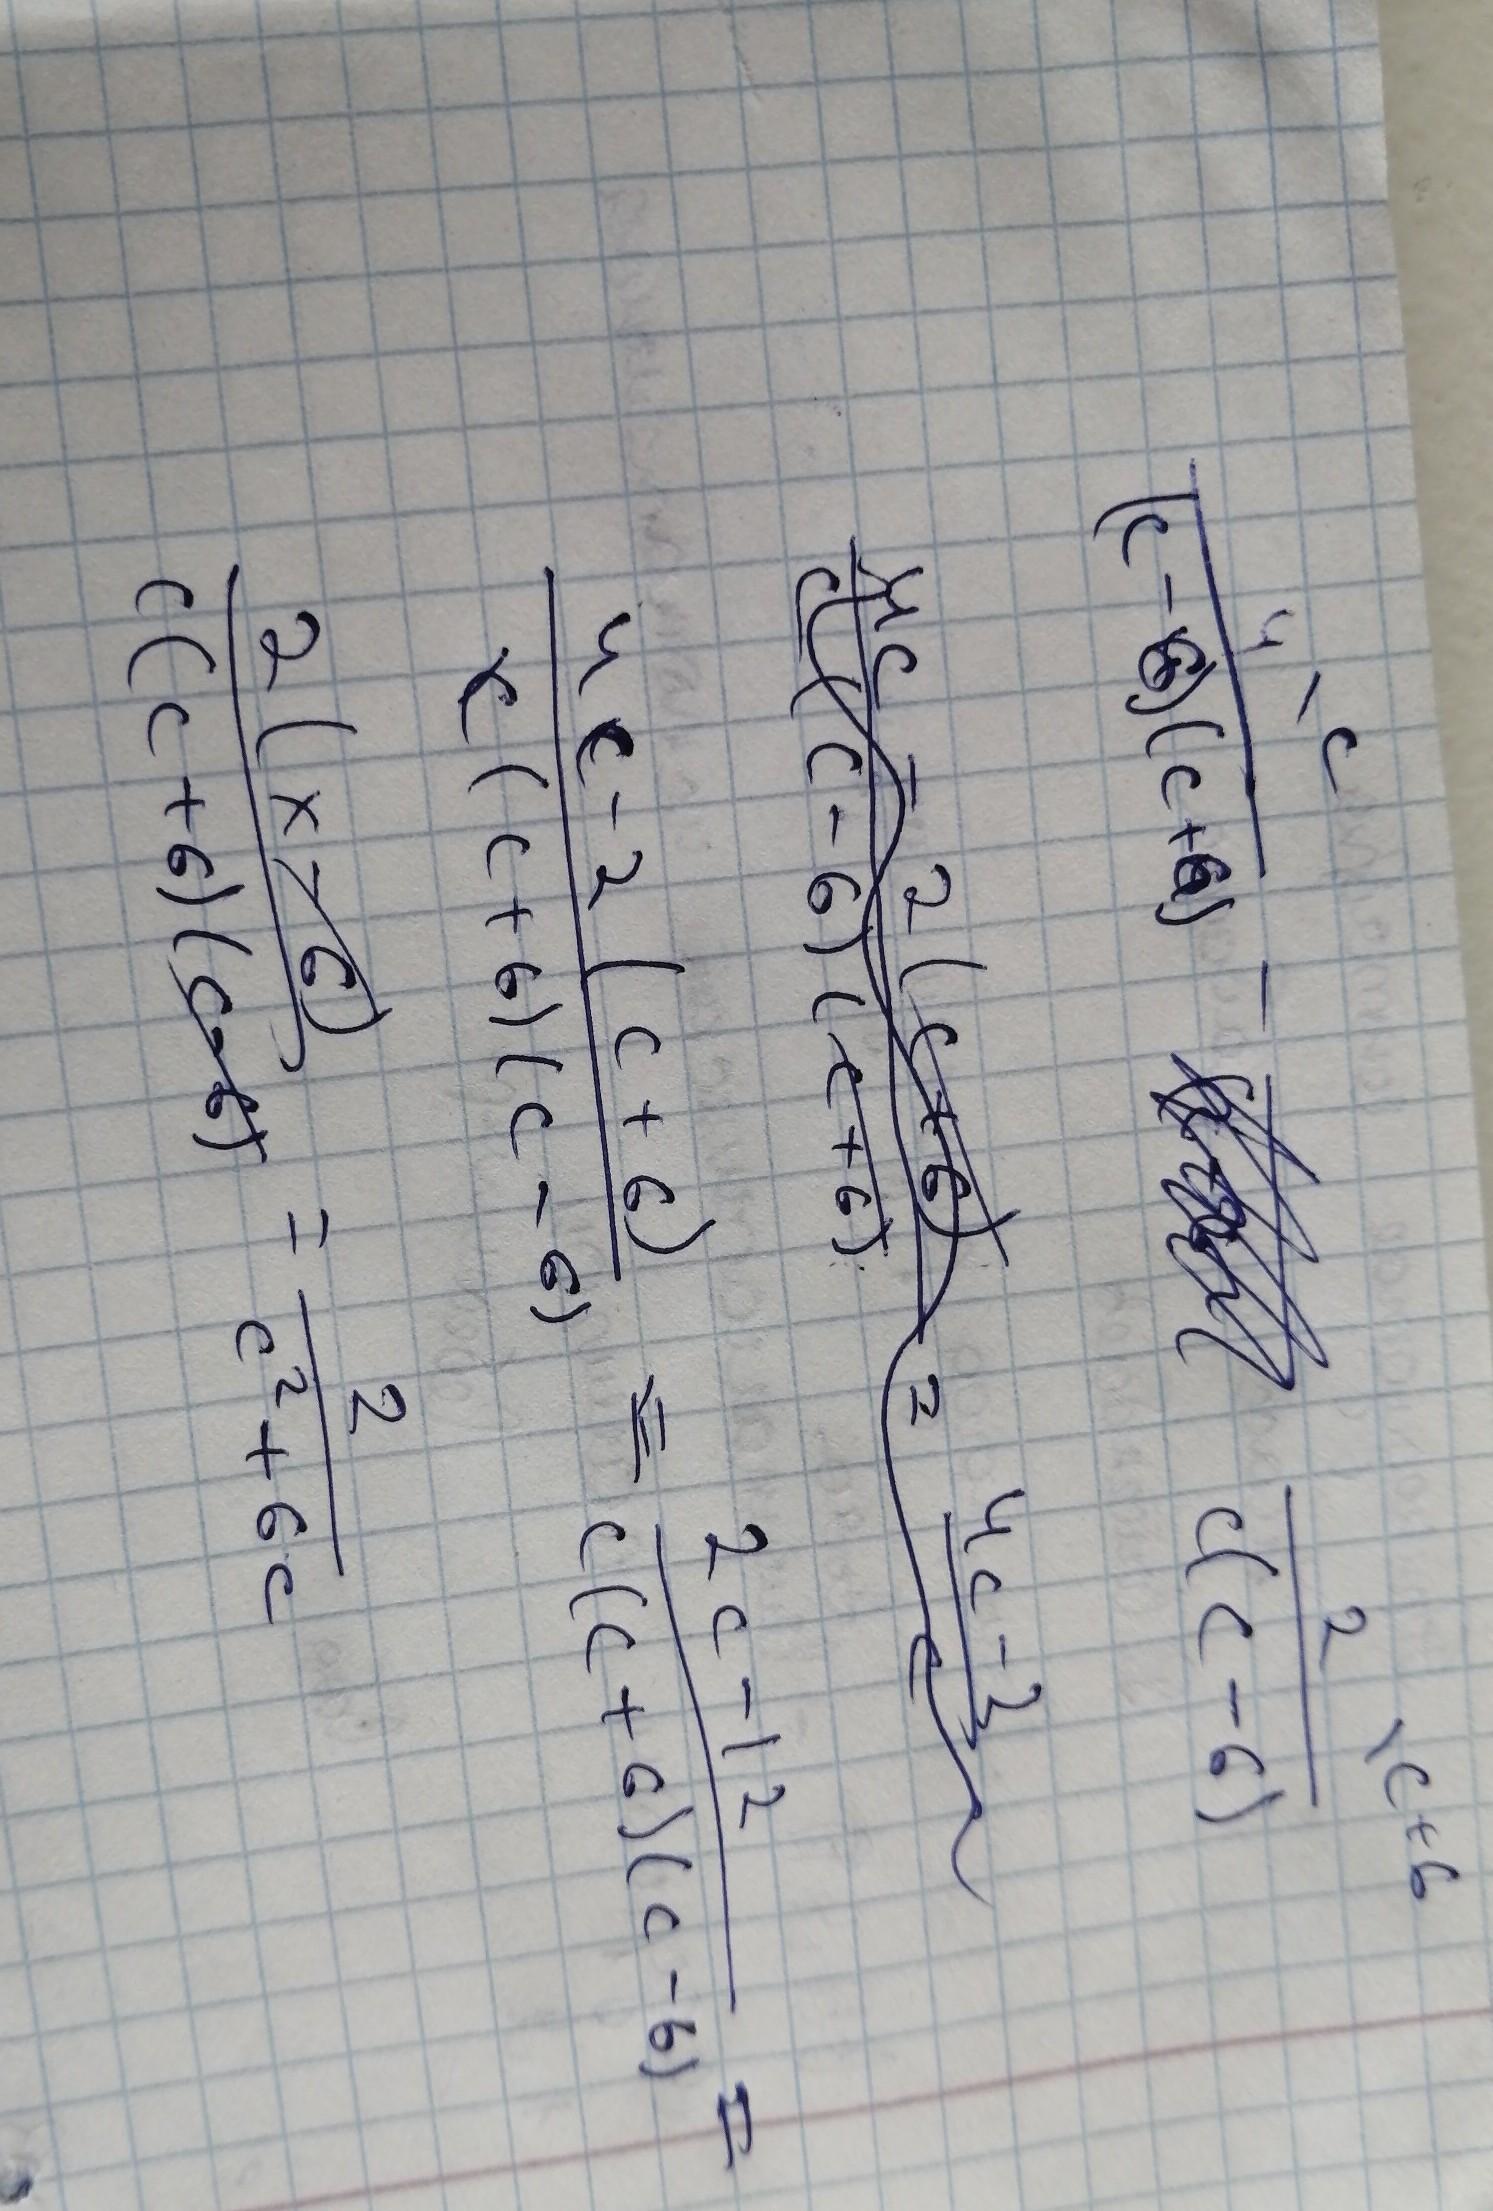 4\c / (c-6)(c+6) - 2\c+6 / c(c-6)
4c - 2(c+6) / c(c-6)(c+6) = 4c-2
4c-2(c+6) / x(c+6)(c-6) = 2c-12 / c(c+6)(c-6) =
2(x-6) / c(c+6)(c-6) = 2 / c²+6c